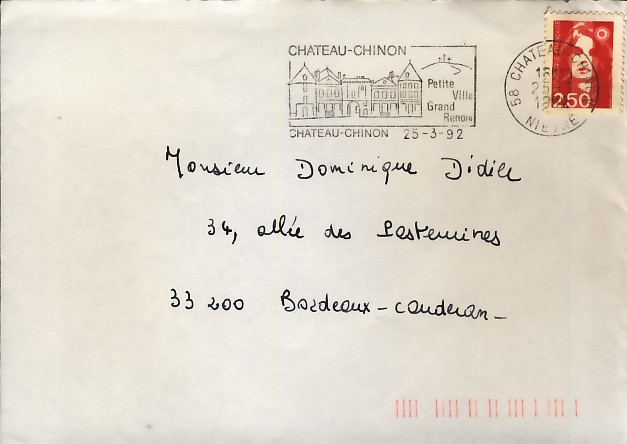 CHATEAU-CHINON
Petite
Ville
Grand
Renom
CHATEAU-CHINON 25-3-92
58 CHATEAU-CHINON
NIEVRE
2.50
Monsieur Dominique Didile
34, allée des
33 200 Bordeaux-Cauderan-